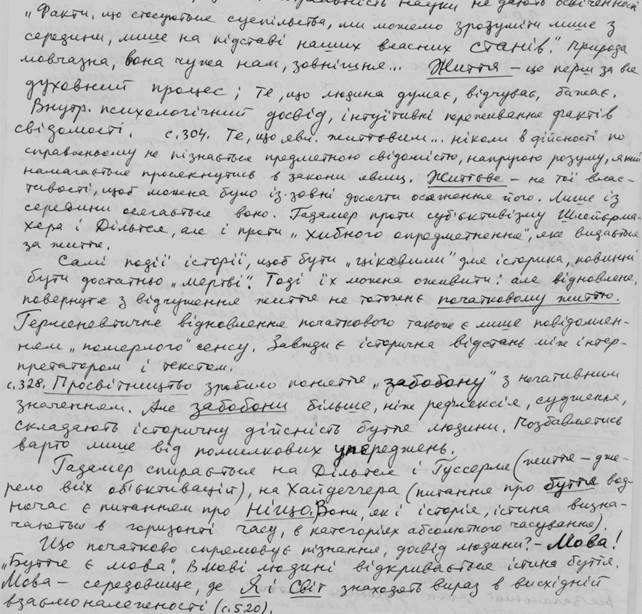 науки не дають
„Факти, що стосуються суспільства, ми можемо зрозуміти лише з
середини, лише на підставі наших власних станів." Природа
мовчазна, вона чужа нам, зовнішня... Життя – це перш за все
духовний процес; те, що людина думає, відчуває, бажає.
Внутр. психологічний досвід, інтуїтивні переживання фактів
свідомості. с.304. Те, що явл. життєвим... ніколи в дійсності по
справжньому не пізнається предметною свідомістю, напругою розуму, який
намагається просякнутись в закони явищ. Життєве – не тої влас-
тивості, щоб можна було із-зовні досягти осягнення його. Лише із
середини осягається воно. Гадамер проти суб'єктивізму Шлейєрма-
хера і Дільтея, але і проти „хибного опредметнення", яке видається
за життя.
Самі події історії, щоб бути „цікавими" для історика, повинні
бути достатньо „мертві". Тоді їх можна оживити: але відновлене,
повернуте з відчуження життя не тотожнє початковому життю.
Герменевтичне відновлення початкового також є лише повідомлен-
ням „померлого" сенсу. Завжди є історична відстань між інтер-
претатором і текстом.
с.328. Просвітництво зробило поняття „забобону" з негативним
значенням. Але забобони більше, ніж рефлексія, судження,
складають історичну дійсність буття людини. Позбавлятись
варто лише від помилкових упереджень.
Гадамер спирається на Дільтея і Гуссерля (життя – дже-
рело всіх об'єктивацій), на Хайдеггера (питання про буття вод-
ночас є питанням про Ніщо. Вони, як і історія, істина визна-
чаються в горизонті часу, в категоріях абсолютного часування).
Що початково спрямовує пізнання, досвід людини? – Мова!
„Буття є мова". В мові людині відкривається істина буття.
Мова – середовище, де Я і Світ знаходять вираз в висхідній
взаємоналежності (с.520).